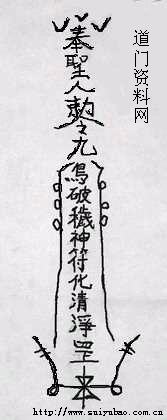 奉聖人勅令九鳥破穢神符化清淨罡
道门资料网
http://www.suiyubao.com/